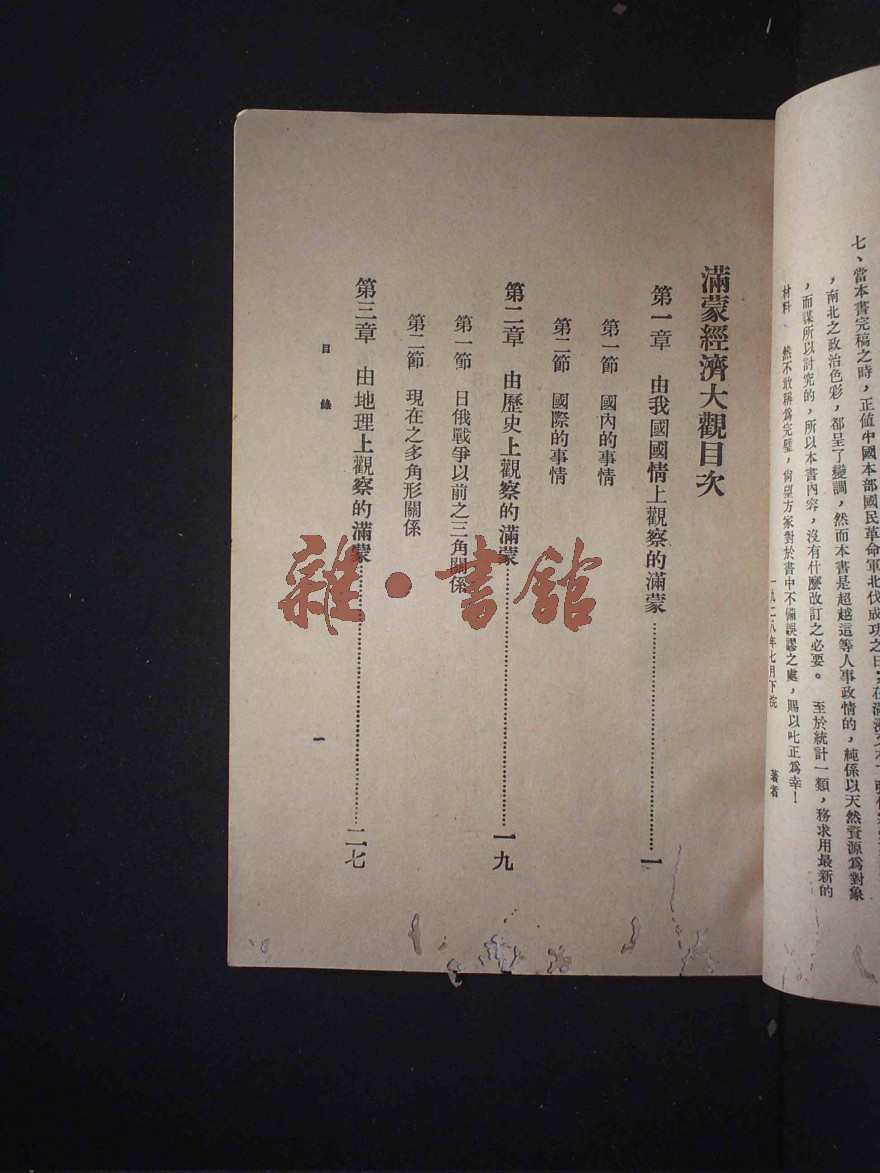 七、當本書完稿之時，正值中國本部國民革命軍北伐成功之日，在滿
，南北之政治色彩，都呈了變調，然而本書是超越這等人事政情的，純係以天然資源爲對象
，而謀所以討究的，所以本書內容，沒有什麽改訂之必要。　至於統計一類，務求用最新的
材料　然不敢稱爲完璧，尙望方家對於書中不備誤謬之處，賜以叱正爲幸！
一九二八年七月下浣　著者
滿蒙經濟大觀目次
第一章　由我國國情上觀察的滿蒙……………………一
第一節　國內的事情
第二節　國際的事情
第二章　由歷史上觀察的滿蒙……………………一九
第一節　日俄戰爭以前之三角關係
第二節　現在之多角形關係
第三章　由地理上觀察的滿蒙……………………二七
目錄　一
雜·書館